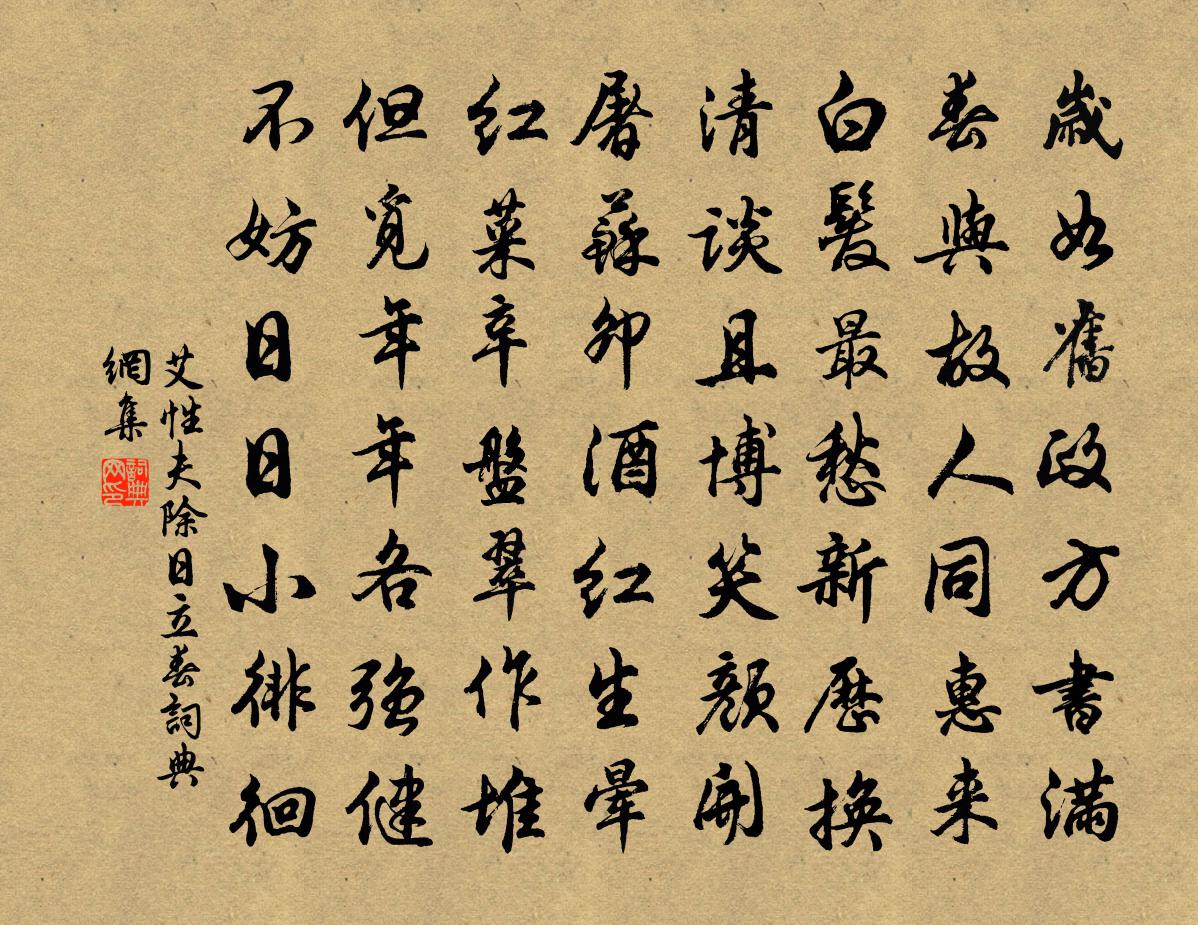 歲如舊政方書滿
春與故人同惠来
白髮最愁新曆換
清談且博笑顏開
屠蘇卯酒紅生暈
紅菜辛盤翠作堆
但覓年年各强健
不妨日日小徘徊
艾性夫除日立春詞典
網集
詞典
网印